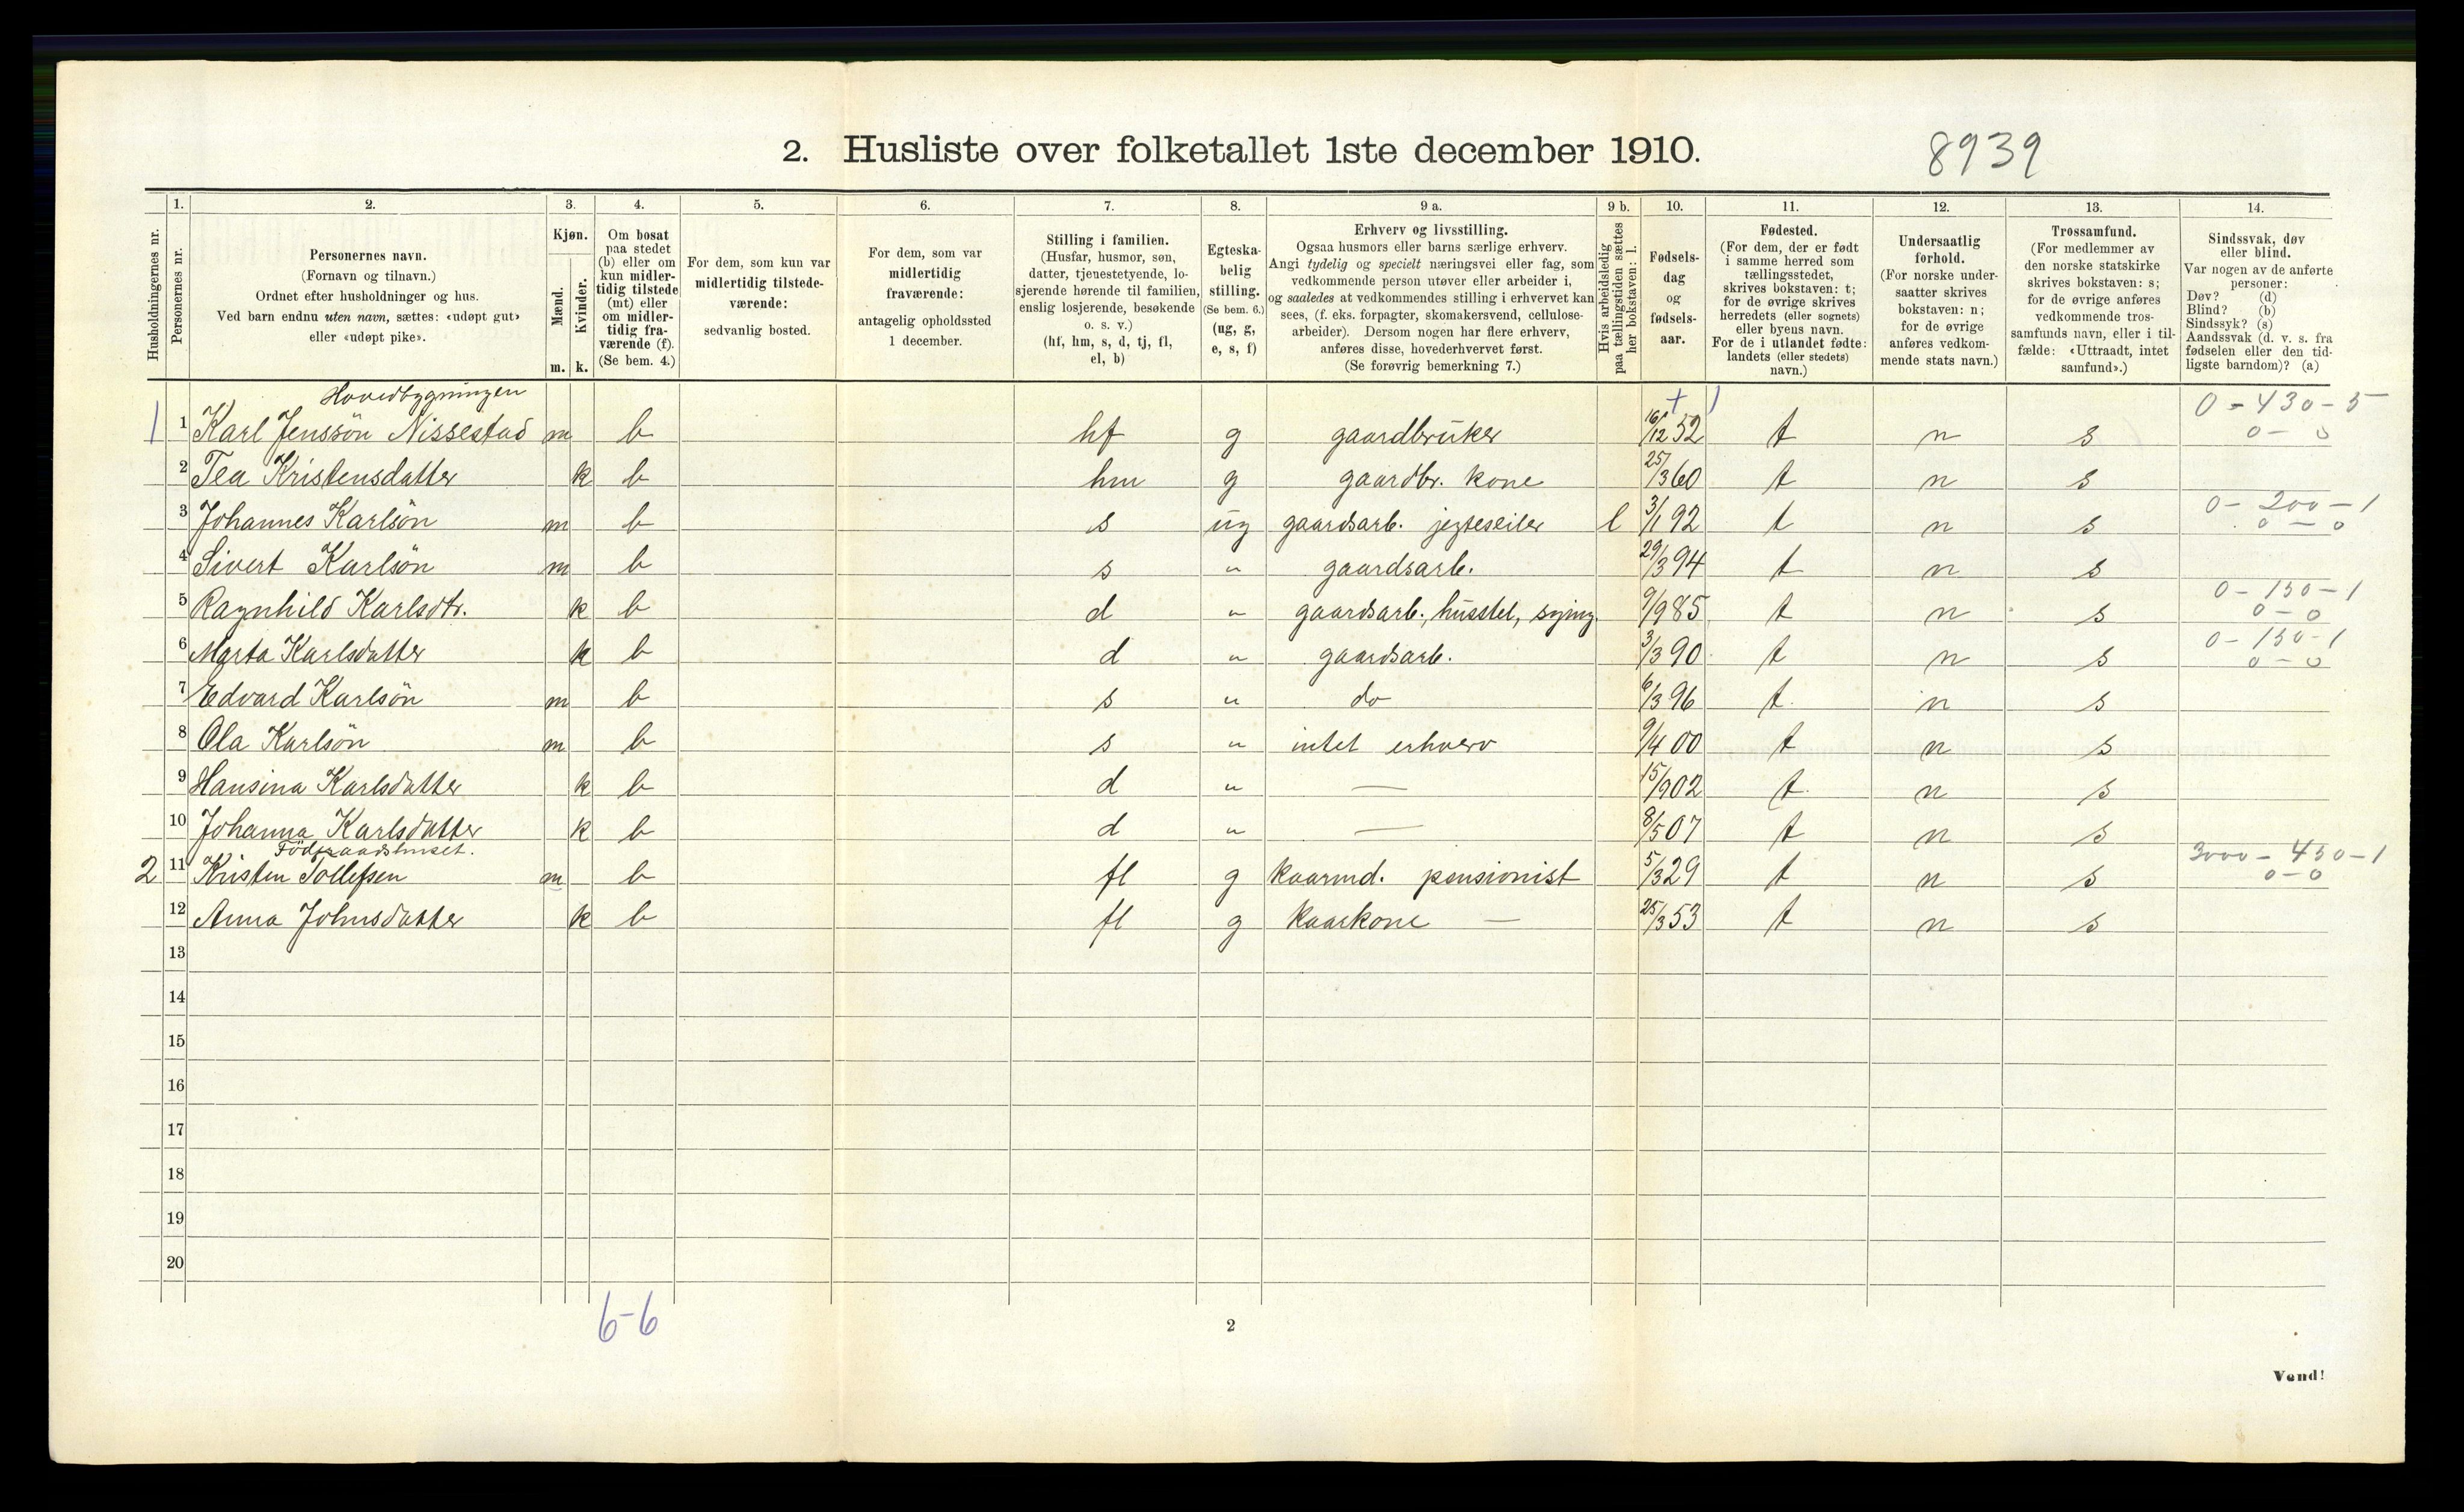 2. Husliste over folketallet 1ste december 1910.
8939
Husholdningernes nr.
1. Personernes nr.
2. Personernes navn. (Fornavn og tilnavn.) Ordnet efter husholdninger og hus. Ved barn endnu uten navn, sættes: «udøpt gut» eller «udøpt pike».
3. Kjøn. Mænd. m. Kvinder. k.
4. Om bosat paa stedet (b) eller om kun midlertidig tilstede (mt) eller om midlertidig fraværende (f). (Se bem. 4.)
5. For dem, som kun var midlertidig tilstedeværende: sedvanlig bosted.
6. For dem, som var midlertidig fraværende: antagelig opholdssted 1 december.
7. Stilling i familien. (Husfar, husmor, søn, datter, tjenestetyende, losjerende hørende til familien, enslig losjerende, besøkende o. s. v.) (hf, hm, s, d, tj, fl, el, b)
8. Egteskabelig stilling. (Se bem. 6.) (ug, g, e, s, f)
9 a. Erhverv og livsstilling. Ogsaa husmors eller barns særlige erhverv. Angi tydelig og specielt næringsvei eller fag, som vedkommende person utøver eller arbeider i, og saaledes at vedkommendes stilling i erhvervet kan sees, (f. eks. forpagter, skomakersvend, cellulosearbeider). Dersom nogen har flere erhverv, anføres disse, hovederhvervet først. (Se forøvrig bemerkning 7.)
9 b. Hvis arbeidsledig paa tællingstiden sættes her bokstaven: l.
10. Fødselsdag og fødselsaar.
11. Fødested. (For dem, der er født i samme herred som tællingsstedet, skrives bokstaven: t; for de øvrige skrives herredets (eller sognets) eller byens navn. For de i utlandet fødte: landets (eller stedets) navn.)
12. Undersaatlig forhold. (For norske undersaatter skrives bokstaven: n; for de øvrige anføres vedkommende stats navn.)
13. Trossamfund. (For medlemmer av den norske statskirke skrives bokstaven: s; for de øvrige anføres vedkommende trossamfunds navn, eller i tilfælde: «Uttraadt, intet samfund».)
14. Sindssvak, døv eller blind. Var nogen av de anførte personer: Døv? (d) Blind? (b) Sindssyk? (s) Aandssvak (d. v. s. fra fødselen eller den tidligste barndom)? (a)
Hovedbygningen + 1 0-430-5
1 1 Karl Jenssön Nissestad m b hf g gaardbruker 16/12 52 t n s 0-0
2 Tea Kristensdatter k b hm g gaardbr. kone 25/3 60 t n s
0-200-1
3 Johannes Karlsön m b s ug gaardsarb. jegteseiler l 3/1 92 t n s 0-0
4 Sivert Karlsön m b s " gaardsarb. 29/3 94 t n s
0-150-1
5 Ragnhild Karlsdtr. k b d " gaardsarb., husstel, sying. 9/9 85 t n s 0-0
0-150-1
6 Marta Karlsdatter k b d " gaardsarb. 3/3 90 t n s 0-0
7 Edvard Karlsön m b s " do 6/3 96 t n s
8 Ola Karlsön m b s " intet erhverv 9/4 00 t n s
9 Hansina Karlsdatter k b d " — 15/9 02 t n s
10 Johanna Karlsdatter k b d " — 8/5 07 t n s
Födraadshuset. 3000-450-1
2 11 Kristen Tollefsen m b fl g kaarmd. pensionist 5/3 29 t n s 0-0
12 Anna Johnsdatter k b fl g kaarkone — 25/3 53 t n s
13
14
15
16
17
18
19
20
6-6
2
Vend!